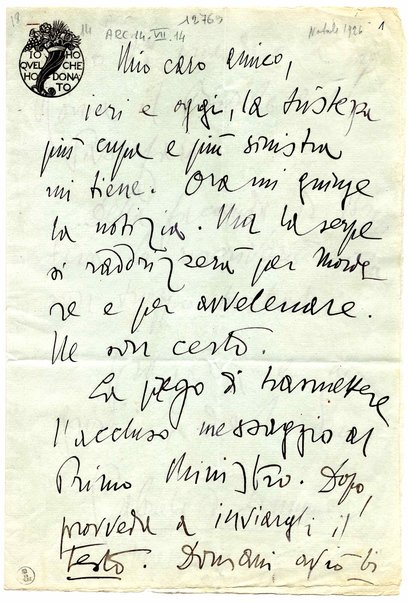 12765
ARC.14.VII.14
Natale 1926
1
IO HO
QUEL CHE
HO DONA
TO
Mio caro amico,
ieri e oggi, la tristezza
più cupa e più sinistra
mi tiene. Ora mi giunge
la notizia. Ma la serpe
si raddrizzerà per morde
re e per avvelenare.
Ne son certo.
La prego di trasmettere
l'accluso messaggio al
Primo Ministro. Dopo,
provveda a inviargli il
testo. Domani